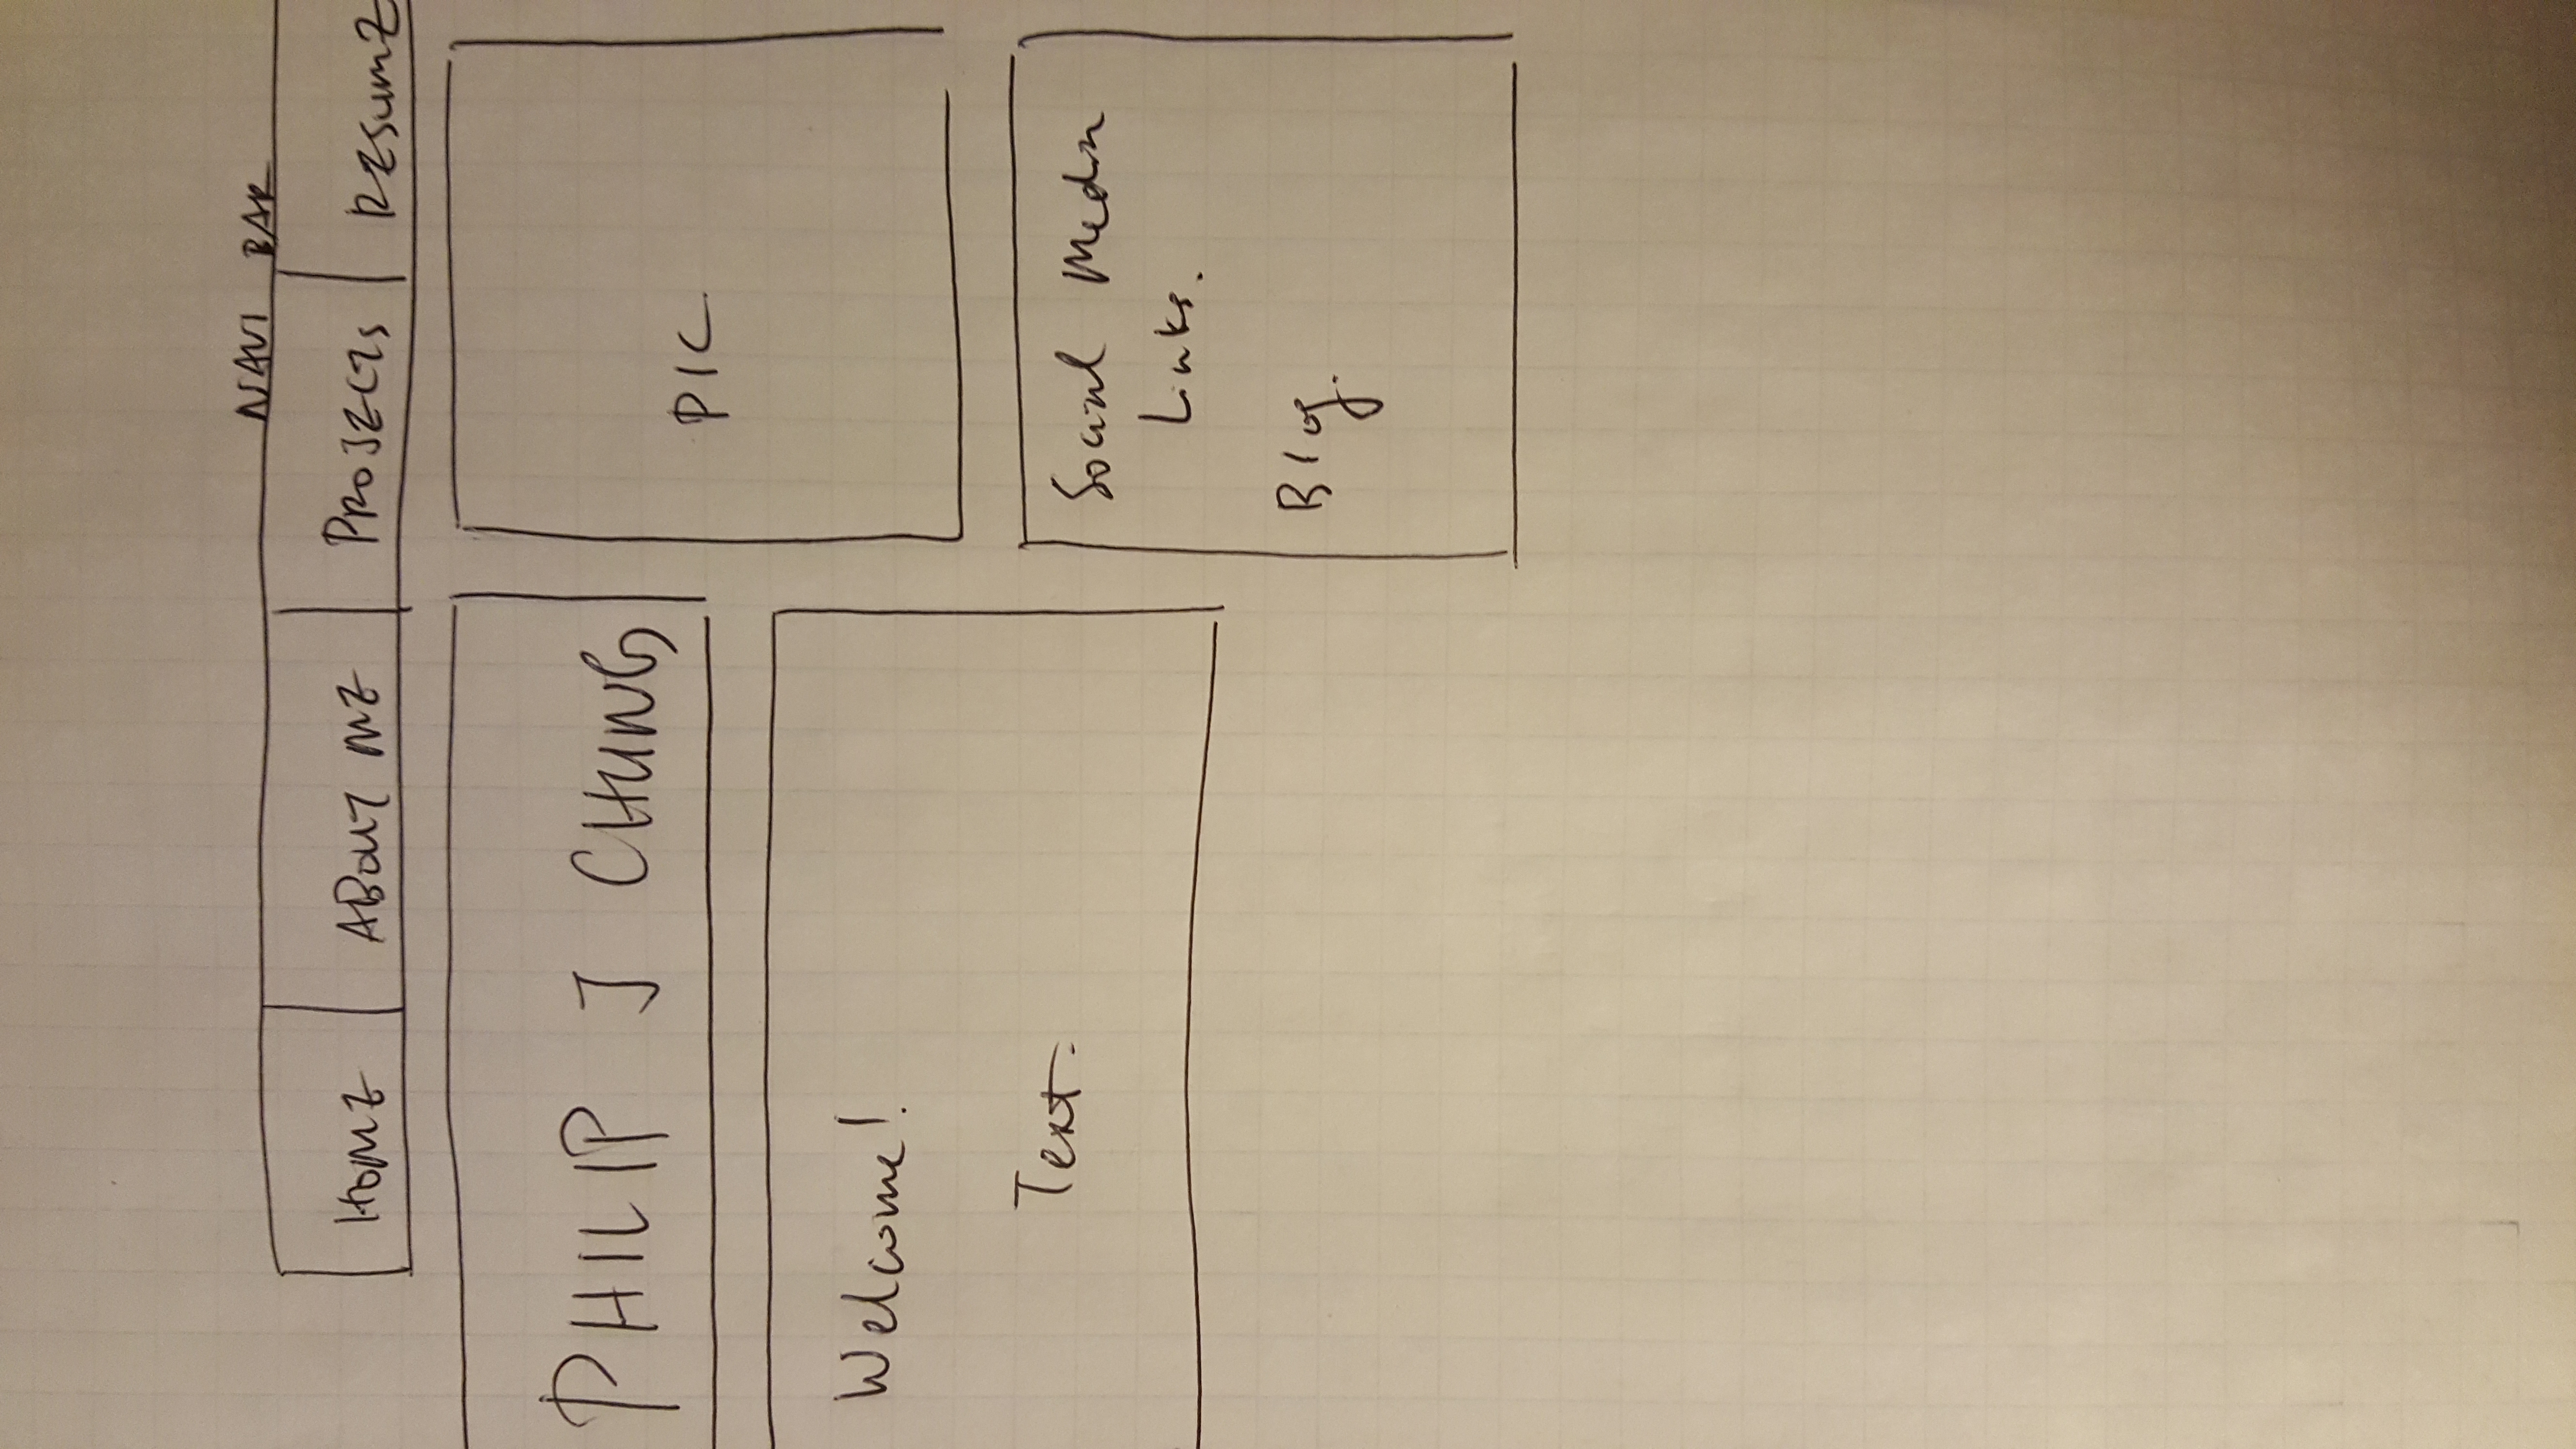 NAVI BAR
HOME ABOUT ME PROJECTS RESUME
PHILIP J CHUNG
PIC
Welcome!
Text.
Social Media
Links.
Blog.